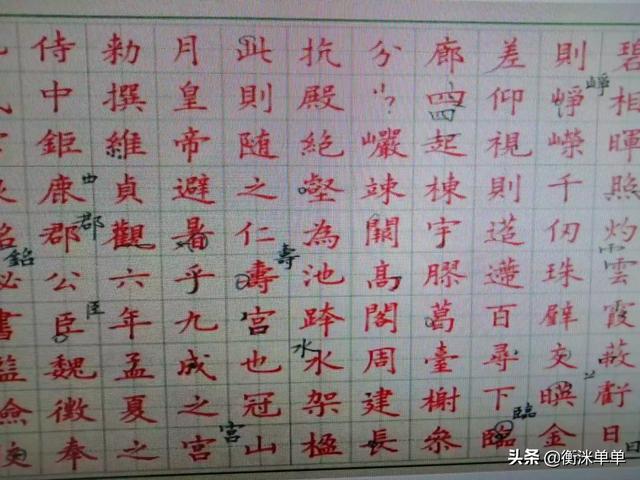 侍中鉅鹿郡公臣魏徵奉
勅撰維貞觀六年孟夏之
月皇帝避暑乎九成之宮
此則随之仁壽宮也冠山
抗殿絶壑為池跨水架楹
分巖竦闕高閣周建長
廊四起棟宇膠葛臺榭叅
差仰視則迢遰百尋下臨
則崢嶸千仞珠璧交暎金
碧相暉照灼雲霞蔽虧日
郡
臣
宮
壽
水
臨
崢
日
头条 @衡洣单单